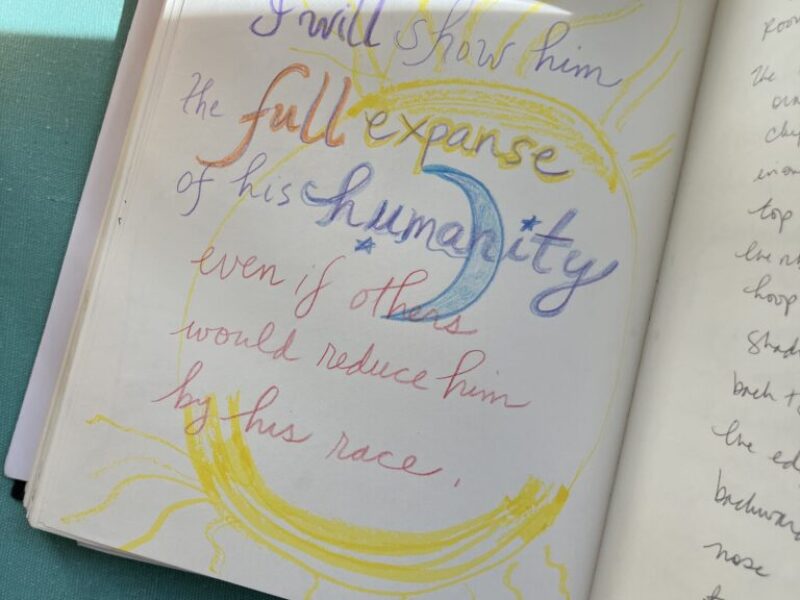 I will show him
the full expanse
of his humanity
even if others
would reduce him
by his race.
the
top
hoop
back
nose